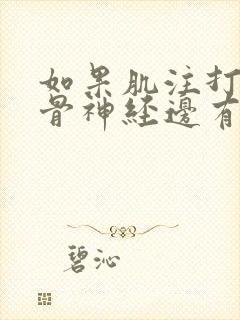 如果肌注打
骨神経邊有
碧沁